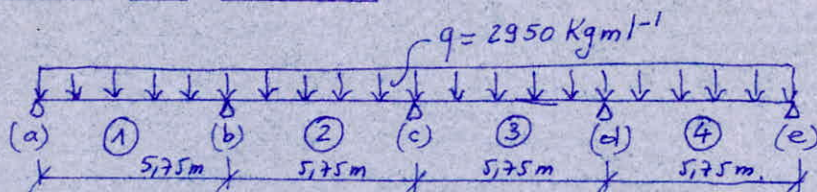 q = 2950 Kgml⁻¹
(a) ① (b) ② (c) ③ (d) ④ (e)
5,75m 5,75m 5,75m 5,75m.